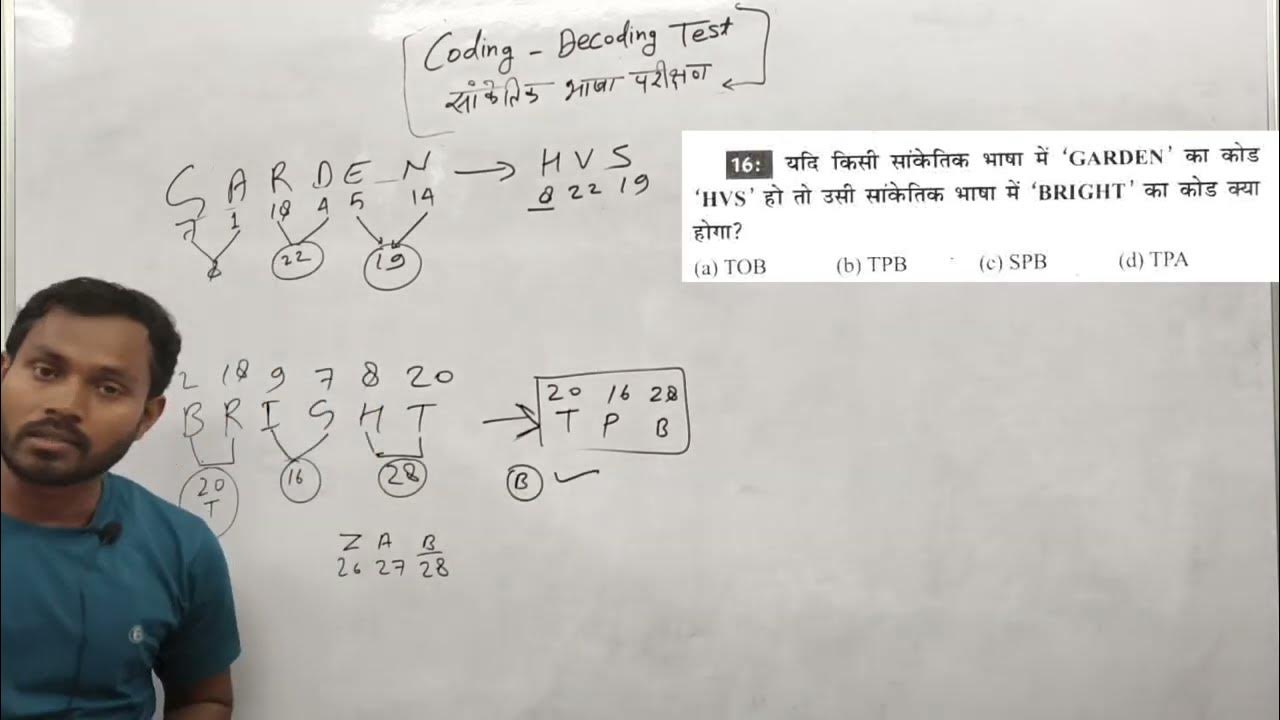 Coding - Decoding Test
सांकेतिक भाषा परीक्षण
G A R D E N → H V S
7 1 18 4 5 14 8 22 19
8 22 19
16: यदि किसी सांकेतिक भाषा में ‘GARDEN’ का कोड
‘HVS’ हो तो उसी सांकेतिक भाषा में ‘BRIGHT’ का कोड क्या
होगा?
(a) TOB (b) TPB (c) SPB (d) TPA
2 18 9 7 8 20 20 16 28
B R I G H T → T P B
20 16 28 B ✓
T
Z A B
26 27 28